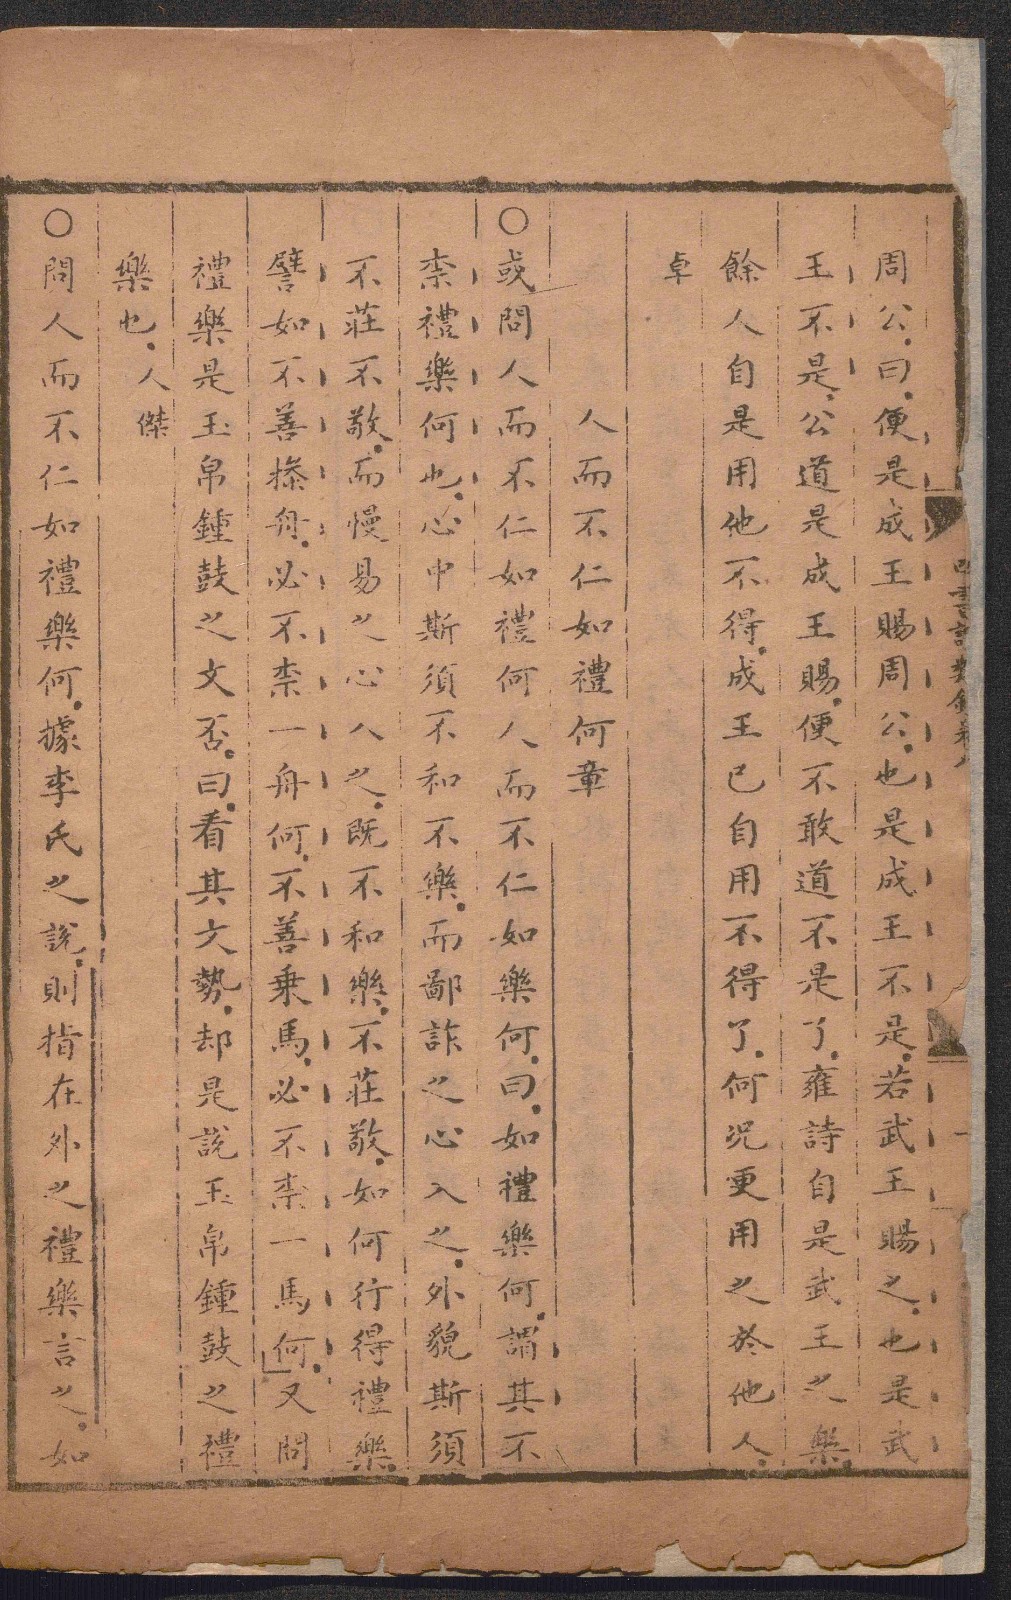 周公曰便是成王賜周公也是成王不是若武王賜之也是武
王不是公道是成王賜便不敢道不是了雍詩自是武王之樂
餘人自是用他不得成王已自用不得了何況更用之於他人
卓
人而不仁如禮何章
○或問人而不仁如禮何人而不仁如樂何曰如禮樂何謂其不
柰禮樂何也心中斯須不和不樂而鄙詐之心入之外貌斯須
不莊不敬而慢易之心入之既不和樂不莊敬如何行得禮樂
譬如不善操舟必不柰一舟何不善乗馬必不柰一馬何又問
禮樂是玉帛鍾鼓之文否曰看其文勢却是說玉帛鍾鼓之禮
樂也人傑
○問人而不仁如禮樂何據李氏之說則指在外之禮樂言之如